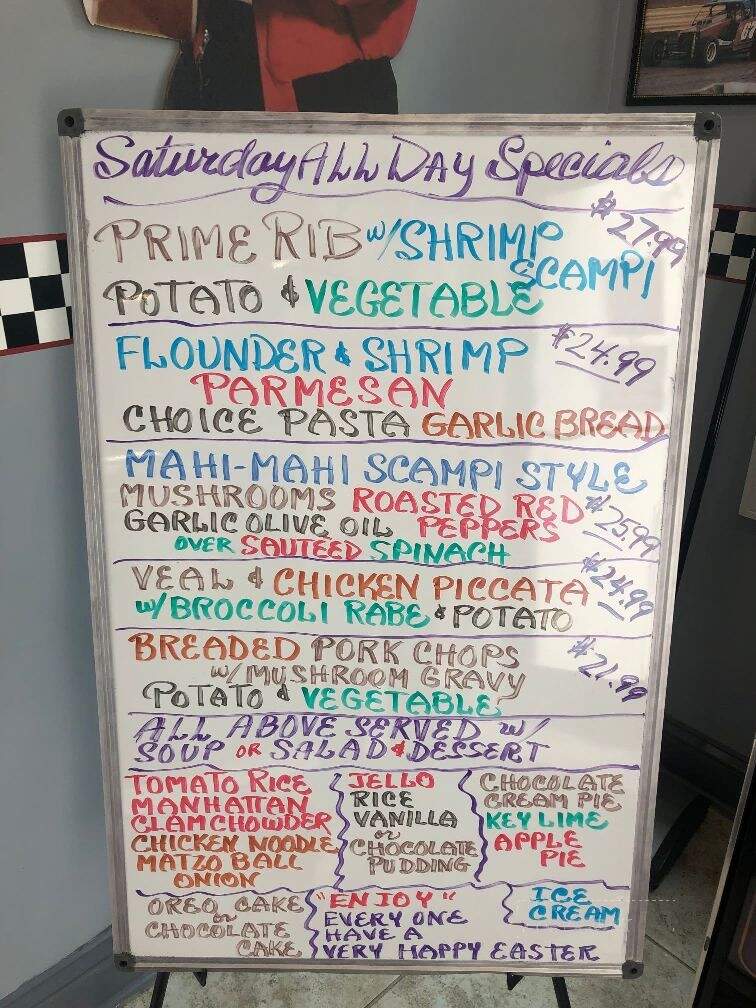 Saturday ALL DAY Specials
PRIME RIB w/ SHRIMP SCAMPI $27.99
POTATO & VEGETABLE
FLOUNDER & SHRIMP $24.99
PARMESAN
CHOICE PASTA GARLIC BREAD
MAHI-MAHI SCAMPI STYLE
MUSHROOMS ROASTED RED PEPPERS $25.99
GARLIC OLIVE OIL
OVER SAUTEED SPINACH
VEAL & CHICKEN PICCATA $24.99
w/ BROCCOLI RABE & POTATO
BREADED PORK CHOPS $21.99
w/ MUSHROOM GRAVY
POTATO & VEGETABLE
ALL ABOVE SERVED w/
SOUP OR SALAD & DESSERT
TOMATO RICE
MANHATTAN
CLAM CHOWDER
CHICKEN NOODLE
MATZO BALL
ONION
JELLO
RICE
VANILLA
or
CHOCOLATE
PUDDING
CHOCOLATE
CREAM PIE
KEY LIME
APPLE
PIE
OREO CAKE
or
CHOCOLATE
CAKE
"ENJOY"
EVERY ONE
HAVE A
VERY HAPPY EASTER
ICE
CREAM